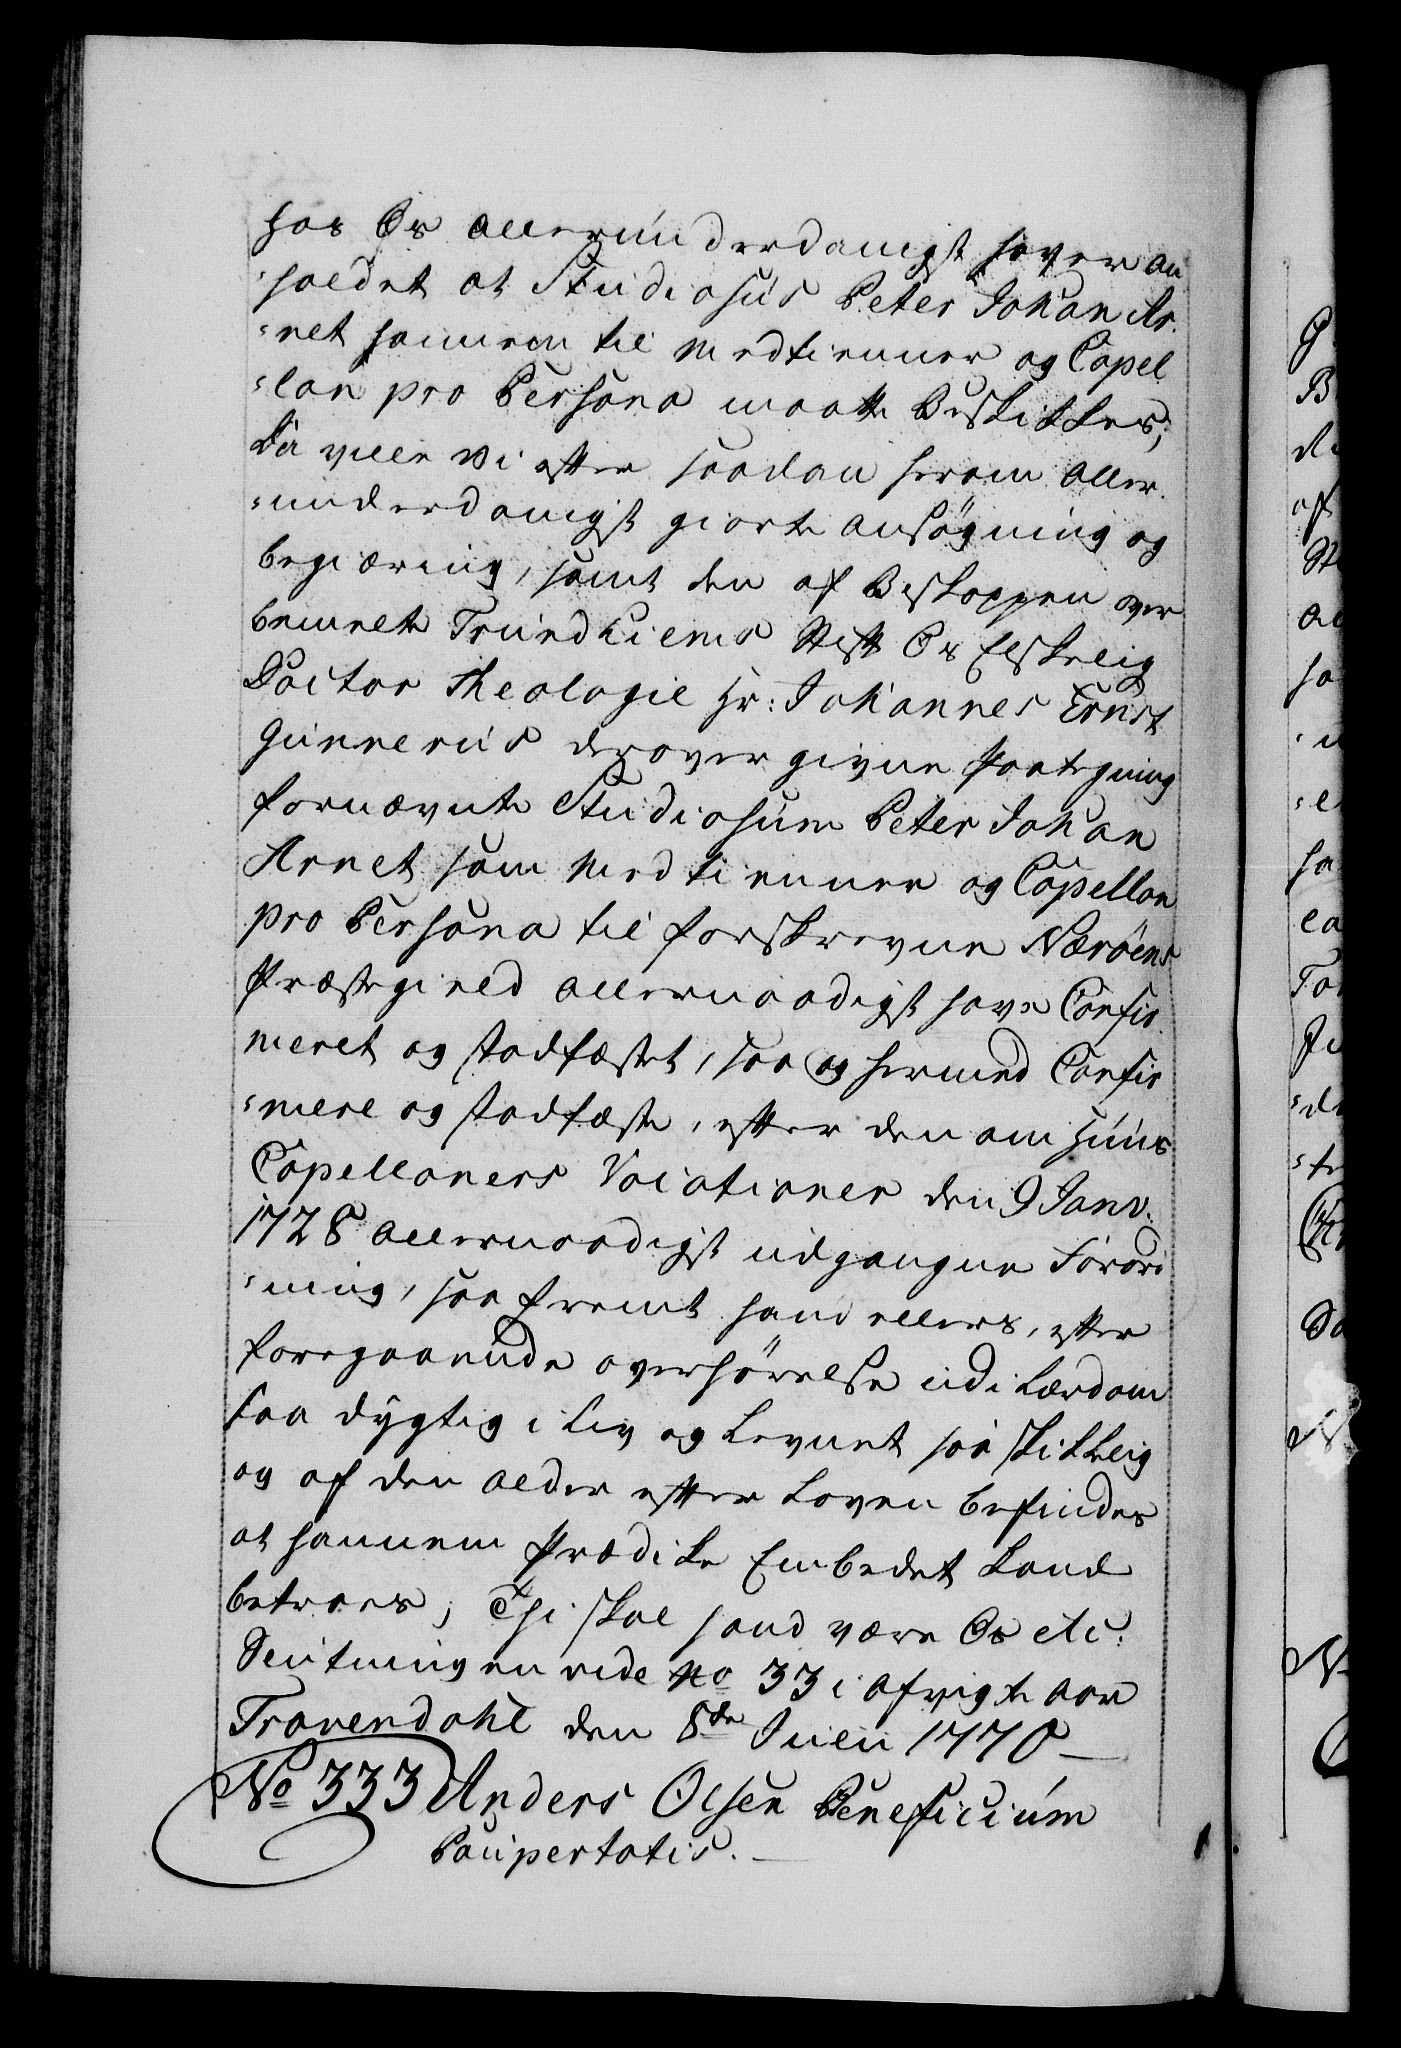 hos Os allerunderdanigst haver an
holdet at Studiosus Peter Johan Ar-
=net hannem til Medtienner og Capel
=lan pro Persona maatte Beskikkes;
Da ville Vi efter saadan herom aller
=underdanigst giorte ansøgning og
begiæring, samt den af Biskoppen over
bemelte Trundhiems Stift Os Elskelig
Doctor Theologiæ Hr: Johannes Ernst
Gunnerus derover givne Paategning
fornævnte Studiosum Peter Johan
Arnet som Medtienner og Capellan
pro Persona til forskrevne Nærøens
Præstegield allernaadigst have Confir
meret og stadfæstet, saa og hermed Confir
=mere og stadfæste, efter den om Huus
Capellaners Vocationer den 9 Janv:
1728 allernaadigst udgangne Forord
=ning, saa fremt hand ellers, efter
foregaaende overhørelse udi Lærdom
saa dygtig i Liv og Levnet saa skikkelig
og af den alder efter Loven befindes
at hannem Prædike Embedet kand
betroes; Thi skal hand være Os etc:
Slutningen vide No 33 i afvigte aar
Travendahl den 8de Julii 1770
No 333 Anders Olsen Beneficium
Paupertatis.